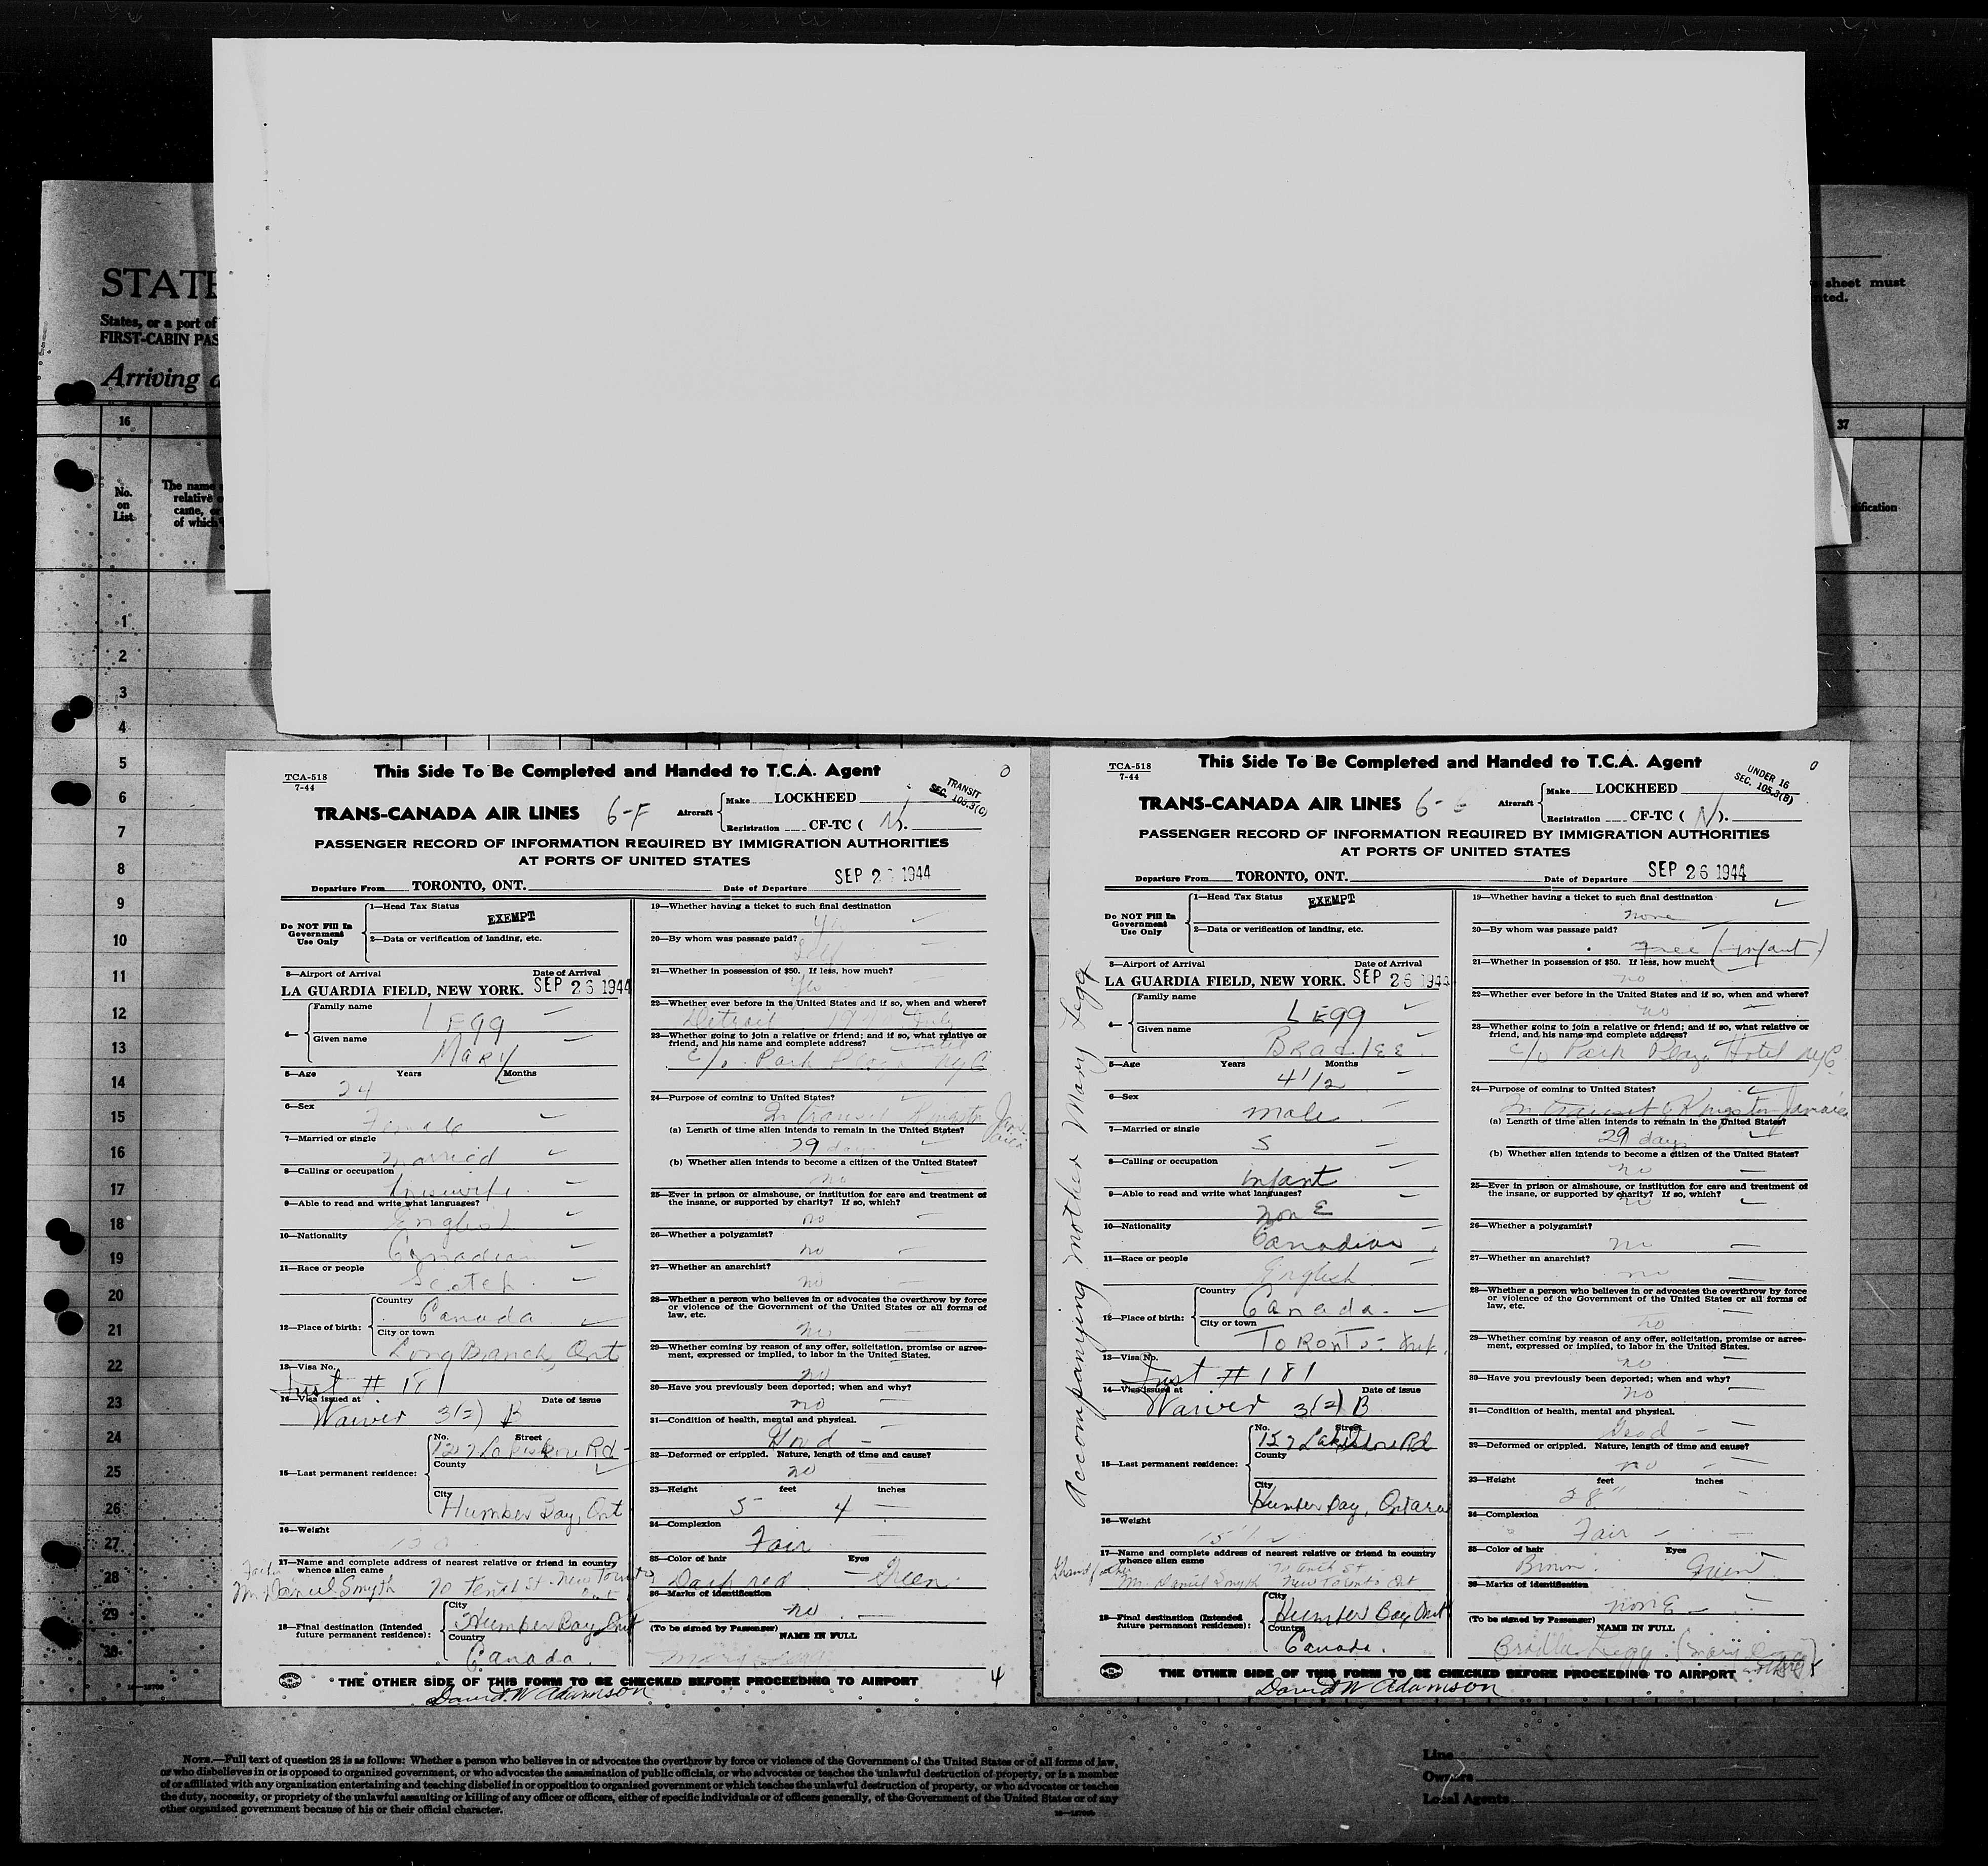 STATE
States, or a port of
FIRST-CABIN PAS
Arriving a
sheet must
ted.
16
37
No.
on
List
The name
relative
came, or
of which
ification
1
2
3
4
5
6
7
8
9
10
11
12
13
14
15
16
17
18
19
20
21
22
23
24
25
26
27
28
29
30
TCA-518
7-44
This Side To Be Completed and Handed to T.C.A. Agent
0
TRANSIT
SEC. 105.3(C)
TRANS-CANADA AIR LINES 6-F
Aircraft
Make LOCKHEED
Registration CF-TC ( N ).
PASSENGER RECORD OF INFORMATION REQUIRED BY IMMIGRATION AUTHORITIES
AT PORTS OF UNITED STATES
Departure From TORONTO, ONT. Date of Departure SEP 26 1944
Do NOT Fill In
Government
Use Only
1—Head Tax Status
EXEMPT
2—Data or verification of landing, etc.
3—Airport of Arrival Date of Arrival
LA GUARDIA FIELD, NEW YORK. SEP 26 1944
4—
Family name
LEgg
Given name
MARY
5—Age Years Months
24
6—Sex
Female
7—Married or single
Married
8—Calling or occupation
housewife
9—Able to read and write what languages?
English
10—Nationality
Canadian
11—Race or people
Scotch
12—Place of birth:
Country
Canada
City or town
Long Branch, Ont
13—Visa No.
Inst # 181
14—Visa issued at Date of issue
Waiver 3(2) B
15—Last permanent residence:
No. Street
Lakeshore Rd
County
City
Humber Bay, Ont
16—Weight
130
17—Name and complete address of nearest relative or friend in country
whence alien came
Father
Mr. Daniel Smyth 70 Tenth St. New Toronto
Ont
18—Final destination (Intended
future permanent residence):
City
Humber Bay, Ont
Country
Canada.
19—Whether having a ticket to such final destination
Yes
20—By whom was passage paid?
Self
21—Whether in possession of $50. If less, how much?
Yes
22—Whether ever before in the United States and if so, when and where?
Detroit
23—Whether going to join a relative or friend; and if so, what relative or
friend, and his name and complete address?
c/o Park Plaza Hotel NYC
24—Purpose of coming to United States?
In transit Kingston Jamaica
(a) Length of time alien intends to remain in the United States?
29 days
(b) Whether alien intends to become a citizen of the United States?
no
25—Ever in prison or almshouse, or institution for care and treatment of
the insane, or supported by charity? If so, which?
no
26—Whether a polygamist?
no
27—Whether an anarchist?
no
28—Whether a person who believes in or advocates the overthrow by force
or violence of the Government of the United States or all forms of
law, etc.
no
29—Whether coming by reason of any offer, solicitation, promise or agree-
ment, expressed or implied, to labor in the United States.
no
30—Have you previously been deported; when and why?
no
31—Condition of health, mental and physical.
Good
32—Deformed or crippled. Nature, length of time and cause?
no
33—Height feet inches
5 4
34—Complexion
Fair
35—Color of hair Eyes
Dark red Green
36—Marks of identification
no
(To be signed by Passenger) NAME IN FULL
Mary Legg
THE OTHER SIDE OF THIS FORM TO BE CHECKED BEFORE PROCEEDING TO AIRPORT
4
David W Adamson
TCA-518
7-44
This Side To Be Completed and Handed to T.C.A. Agent
0
UNDER 16
SEC. 105.3(B)
TRANS-CANADA AIR LINES 6-
Aircraft
Make LOCKHEED
Registration CF-TC ( N ).
PASSENGER RECORD OF INFORMATION REQUIRED BY IMMIGRATION AUTHORITIES
AT PORTS OF UNITED STATES
Departure From TORONTO, ONT. Date of Departure SEP 26 1944
Accompanying mother Mary Legg
Do NOT Fill In
Government
Use Only
1—Head Tax Status
EXEMPT
2—Data or verification of landing, etc.
3—Airport of Arrival Date of Arrival
LA GUARDIA FIELD, NEW YORK. SEP 26 1944
4—
Family name
LEgg
Given name
BRADLEE
5—Age Years Months
4 1/2
6—Sex
male
7—Married or single
S
8—Calling or occupation
infant
9—Able to read and write what languages?
nonE
10—Nationality
Canadian
11—Race or people
English
12—Place of birth:
Country
Canada.
City or town
ToRonTo - Ont.
13—Visa No.
Inst # 181
14—Visa issued at Date of issue
Waiver 3(2) B
15—Last permanent residence:
No. Street
157 Lakeshore Rd
County
City
Humber Bay, Ontario
16—Weight
17—Name and complete address of nearest relative or friend in country
whence alien came
Grandfather
Mr. Daniel Smyth 70 Tenth St
New Toronto Ont
18—Final destination (Intended
future permanent residence):
City
Humber Bay Ont
Country
Canada.
19—Whether having a ticket to such final destination
none
20—By whom was passage paid?
Free (infant)
21—Whether in possession of $50. If less, how much?
no
22—Whether ever before in the United States and if so, when and where?
no
23—Whether going to join a relative or friend; and if so, what relative or
friend, and his name and complete address?
c/o Park Plaza Hotel NYC
24—Purpose of coming to United States?
In transit to Kingston Jamaica
(a) Length of time alien intends to remain in the United States?
29 days
(b) Whether alien intends to become a citizen of the United States?
no
25—Ever in prison or almshouse, or institution for care and treatment of
the insane, or supported by charity? If so, which?
no
26—Whether a polygamist?
no
27—Whether an anarchist?
no
28—Whether a person who believes in or advocates the overthrow by force
or violence of the Government of the United States or all forms of
law, etc.
no
29—Whether coming by reason of any offer, solicitation, promise or agree-
ment, expressed or implied, to labor in the United States.
no
30—Have you previously been deported; when and why?
no
31—Condition of health, mental and physical.
Good
32—Deformed or crippled. Nature, length of time and cause?
no
33—Height feet inches
28"
34—Complexion
Fair
35—Color of hair Eyes
Brown Green
36—Marks of identification
nonE
(To be signed by Passenger) NAME IN FULL
Bradlee Legg (Mary Legg)
THE OTHER SIDE OF THIS FORM TO BE CHECKED BEFORE PROCEEDING TO AIRPORT
David W Adamson
NOTE.—Full text of question 28 is as follows: Whether a person who believes in or advocates the overthrow by force or violence of the Government of the United States or of all forms of law,
or who disbelieves in or is opposed to organized government, or who advocates the assassination of public officials, or who advocates or teaches the unlawful destruction of property, or is a member
of or affiliated with any organization entertaining and teaching disbelief in or opposition to organized government or which teaches the unlawful destruction of property, or who advocates or teaches
the duty, necessity, or propriety of the unlawful assaulting or killing of any officer or officers, either of specific individuals or of officers generally, of the Government of the United States or of any
other organized government because of his or their official character.
Line
Owners
Local Agents